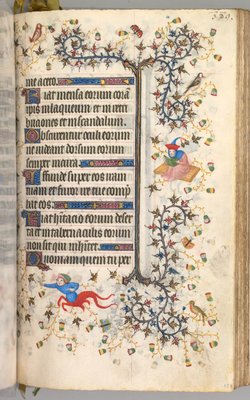 me aceto.
Fiat mensa eorum corã
ipis in laqueum et in retri
butiones et in scandalum.
Obscurentur oculi eorum
ne videant dorsum eorum
semper
Effunde super eos
tuam et furor ire tue comp
hat eos.
Fiat hitacio eorum deser
ta et in tabernaculis eorum
non sit qui inhitet.
Quoniam quem tu per